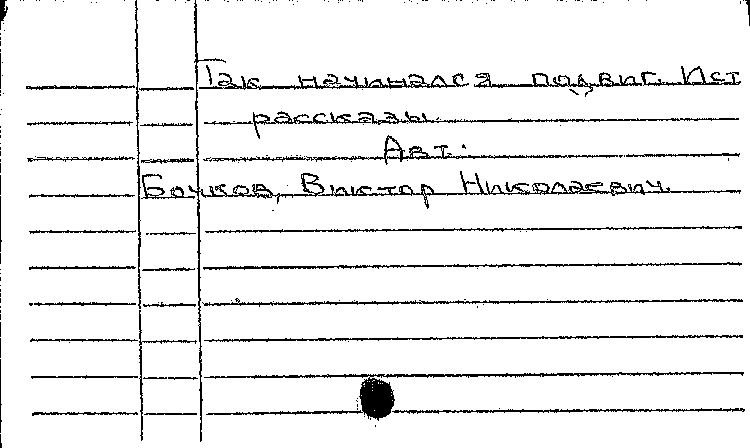 Так начинался подвиг. Ист
рассказы.
Авт.
Бочков, Виктор Николаевич.